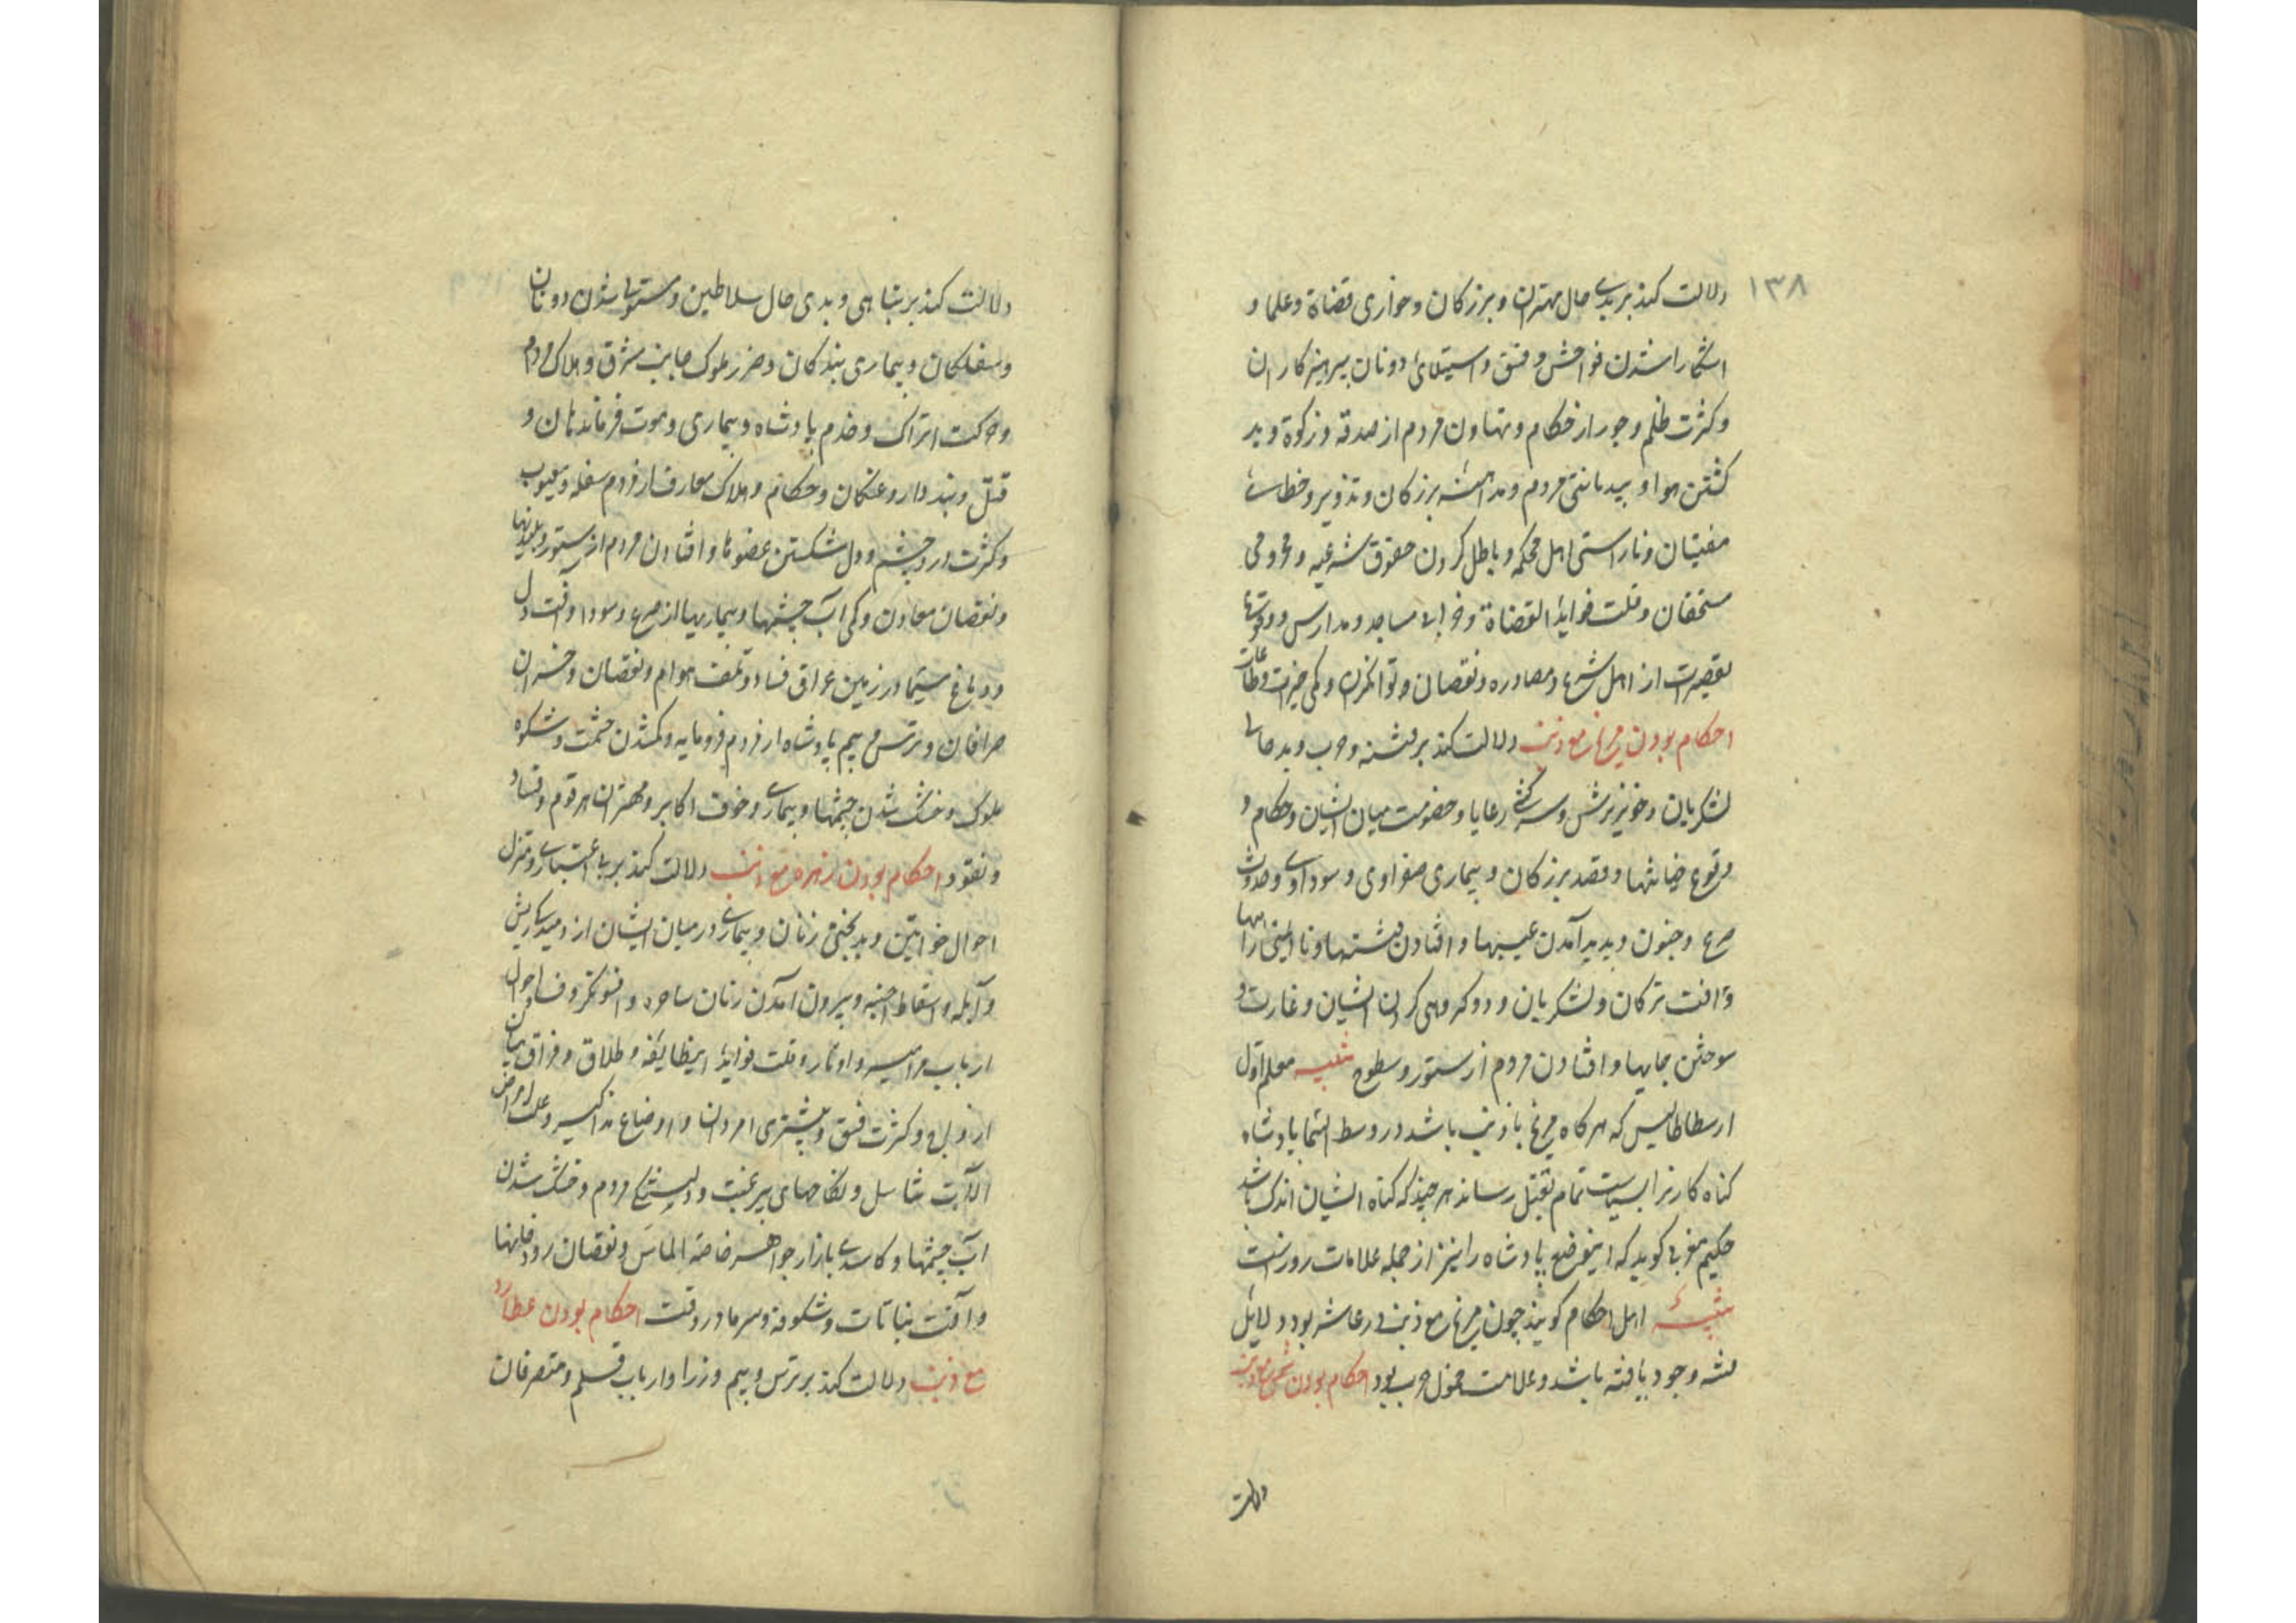 ۱۳۸
دلالت کند بر بدی حال مهتران و بزرکان و خواری قضاة و علما و
اشکارا شدن فواحش و فسق و استیلای دونان بپرهیزکاران
و کثرت ظلم و جور از حکام و تهاون مردم از صدقه و زکوة و بد
کشتن هوا و بیدیانتی مردم و مداهنه بزرکان و تزویر و خطای
مفتیان و ناراستی اهل محکمه و باطل کردن حقوق شرعیه و محرومی
مستحقان و قلت فواید القضاة و خرابی مساجد و مدارس و وقوع
تقصیرات از اهل شرع و مصادره و نقصان و توانکران و کمی خیرات و طاعات
احکام بودن مریخ مع ذنب دلالت کند بر فتنه و حرب و بد حالی
لشکریان و خونریزش و سرکشی رعایا و خصومت میان ایشان و حکام و
وقوع خیانتها و قصد بزرکان و بیماری صفراوی و سوداوی و حدوث
صرع و جنون و پدید آمدن عیبها و افتادن فتنها و ناایمنی راهها
و آفت ترکان و لشکریان و دو کروهی کردن ایشان و غارت و
سوختن جایها و افتادن مردم از ستور و سطوح تنبیه معلم اول
ارسطاطالیس که هرکاه مریخ با ذنب باشد در وسط السما پادشاه
کناه کارنرا بسیاست تمام بقتل رساند هر چند که کناه ایشان اندک باشد
حکیم مغربی کوید که اینوضع پادشاه را نیز از جمله علامات روز است
تنبیه اهل احکام کویند چون مریخ مع ذنب در عاشر بود دلایل
فتنه وجود یافته باشد و علامت حرب بود احکام بودن شمس مع ذنب
دلالت
دلالت کند بر تباهی و بدی حال سلاطین و مستولی شدن دونان
و سفلکان و بیماری بندکان و ضرر ملوک جانب مشرق و هلاک مردم
و حرکت اتراک و خدم پادشاه و بیماری و موت فرماندهان و
قتل و بند داروغکان و حکام و هلاک معارف از مردم سفله و معیوب
و کثرت درد چشم و دل شکستن عضوها و افتادن مردم از ستور و بلندیها
و نقصان معادن و کمی آب چشمها و بیماریها از صرع و سودا و آفت دل
و دماغ سیما در زمین عراق فساد و تلف هوام و نقصان و خسران
صرافان و ترس و بیم پادشاه از مردم فرومایه و کمشدن حشمت و شکوه
ملوک و خشک شدن چشمها و بیماری و خوف اکابر و مهتران هر قوم و فساد
و نقود احکام بودن زهره مع ذنب دلالت کند بر بی اعتباری و تنزل
احوال خواتین و بدبختی زنان و بیماری در میان ایشان از دمیدکی ریش
و آبله و اسقاط اجنه و بیرون آمدن زنان ساحره و افسونکر و فساد احوال
ارباب مزامیر و اوتار و قلت فواید اینطایفه و طلاق و فراق میان
ازواج و کثرت فسق و بیشتری امردان و اوضاع مذاکیر و علت امراض
آلات تناسل و نکاحهای بیرغبت و دلبستکی مردم و خشک شدن
آب چشمها و کاسدی بازار جواهر خاصه الماس و نقصان رودخانها
و آفت نباتات و شکوفه و سرما در وقت احکام بودن عطارد
مع ذنب دلالت کند بر ترس و بیم وزرا و ارباب قلم و متصرفان